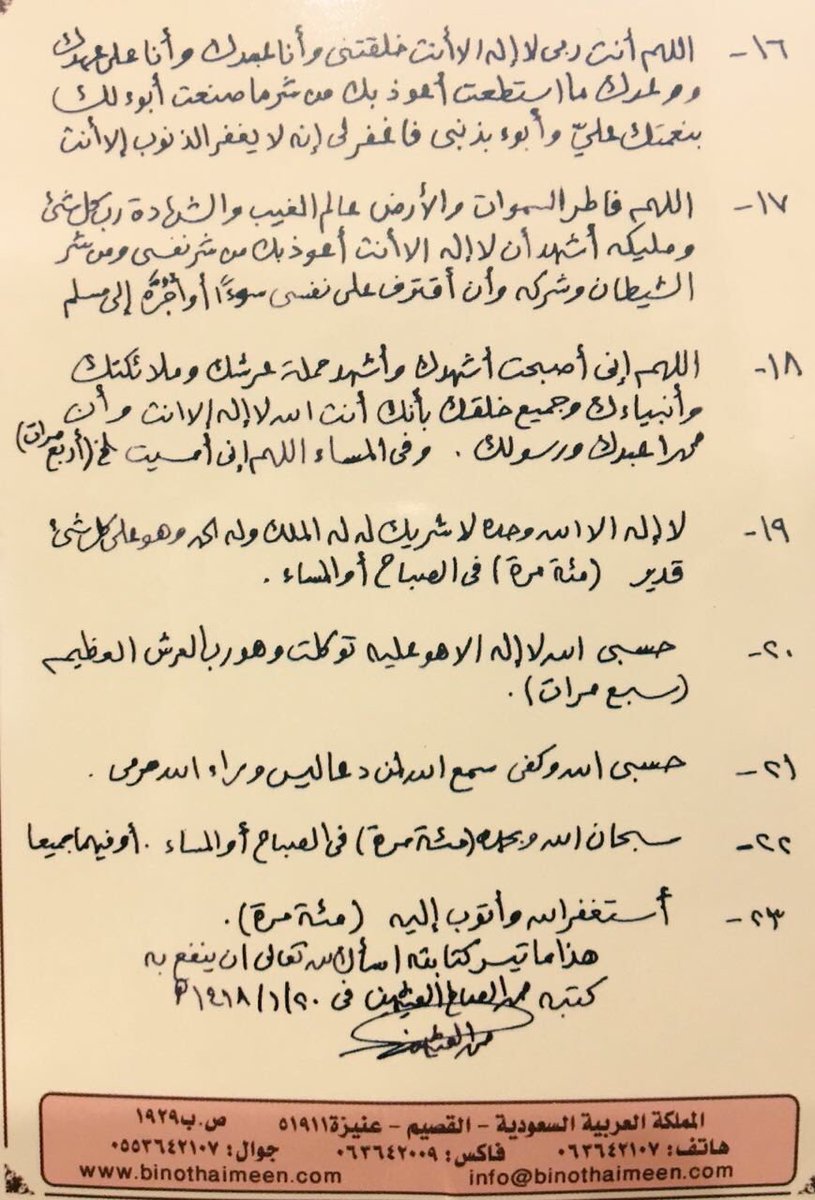 ١٦- اللهم أنت ربي لا إله إلا أنت خلقتني وأنا عبدك وأنا على عهدك
ووعدك ما استطعت أعوذ بك من شر ما صنعت أبوء لك
بنعمتك عليّ وأبوء بذنبي فاغفر لي إنه لا يغفر الذنوب إلا أنت
١٧- اللهم فاطر السموات والأرض عالم الغيب والشهادة رب كل شئ
ومليكه أشهد أن لا إله الا أنت أعوذ بك من شر نفسي ومن شر
الشيطان وشركه وأن أقترف على نفسي سوءًا أو أجُرَّه إلى مسلم
١٨- اللهم إني أصبحت أشهدك وأشهد حملة عرشك وملائكتك
وأنبياءك وجميع خلقك بأنك أنت الله لا إله إلا انت وأن
محمدا عبدك ورسولك . وفي المساء اللهم إني أمسيت الخ (أربع مرات)
١٩- لا إله الا الله وحده لا شريك له له الملك وله الحمد وهو على كل شئ
قدير (مئة مرة) في الصباح أو المساء .
٢٠- حسبي الله لا إله الا هو عليه توكلت وهو رب العرش العظيم
(سبع مرات) .
٢١- حسبي الله وكفى سمع الله لمن دعا ليس وراء الله مرمى .
٢٢- سبحان الله وبحمده (مئة مرة) في الصباح أو المساء . أو فيهما جميعا
٢٣- أستغفر الله وأتوب إليه (مئة مرة) .
هذا ما تيسر كتابته اسأل الله تعالى ان ينفع به
كتبه محمد الصالح العثيمين في ٢٠/١/١٤١٨ هـ
محمد العثيمين
المملكة العربية السعودية - القصيم - عنيزة ٥١٩١١ ص.ب ١٩٢٩
هاتف: ٠٦٣٦٤٢١٠٧ فاكس: ٠٦٣٦٤٢٠٠٩ جوال: ٠٥٥٣٦٤٢١٠٧
www.binothaimeen.com info@binothaimeen.com